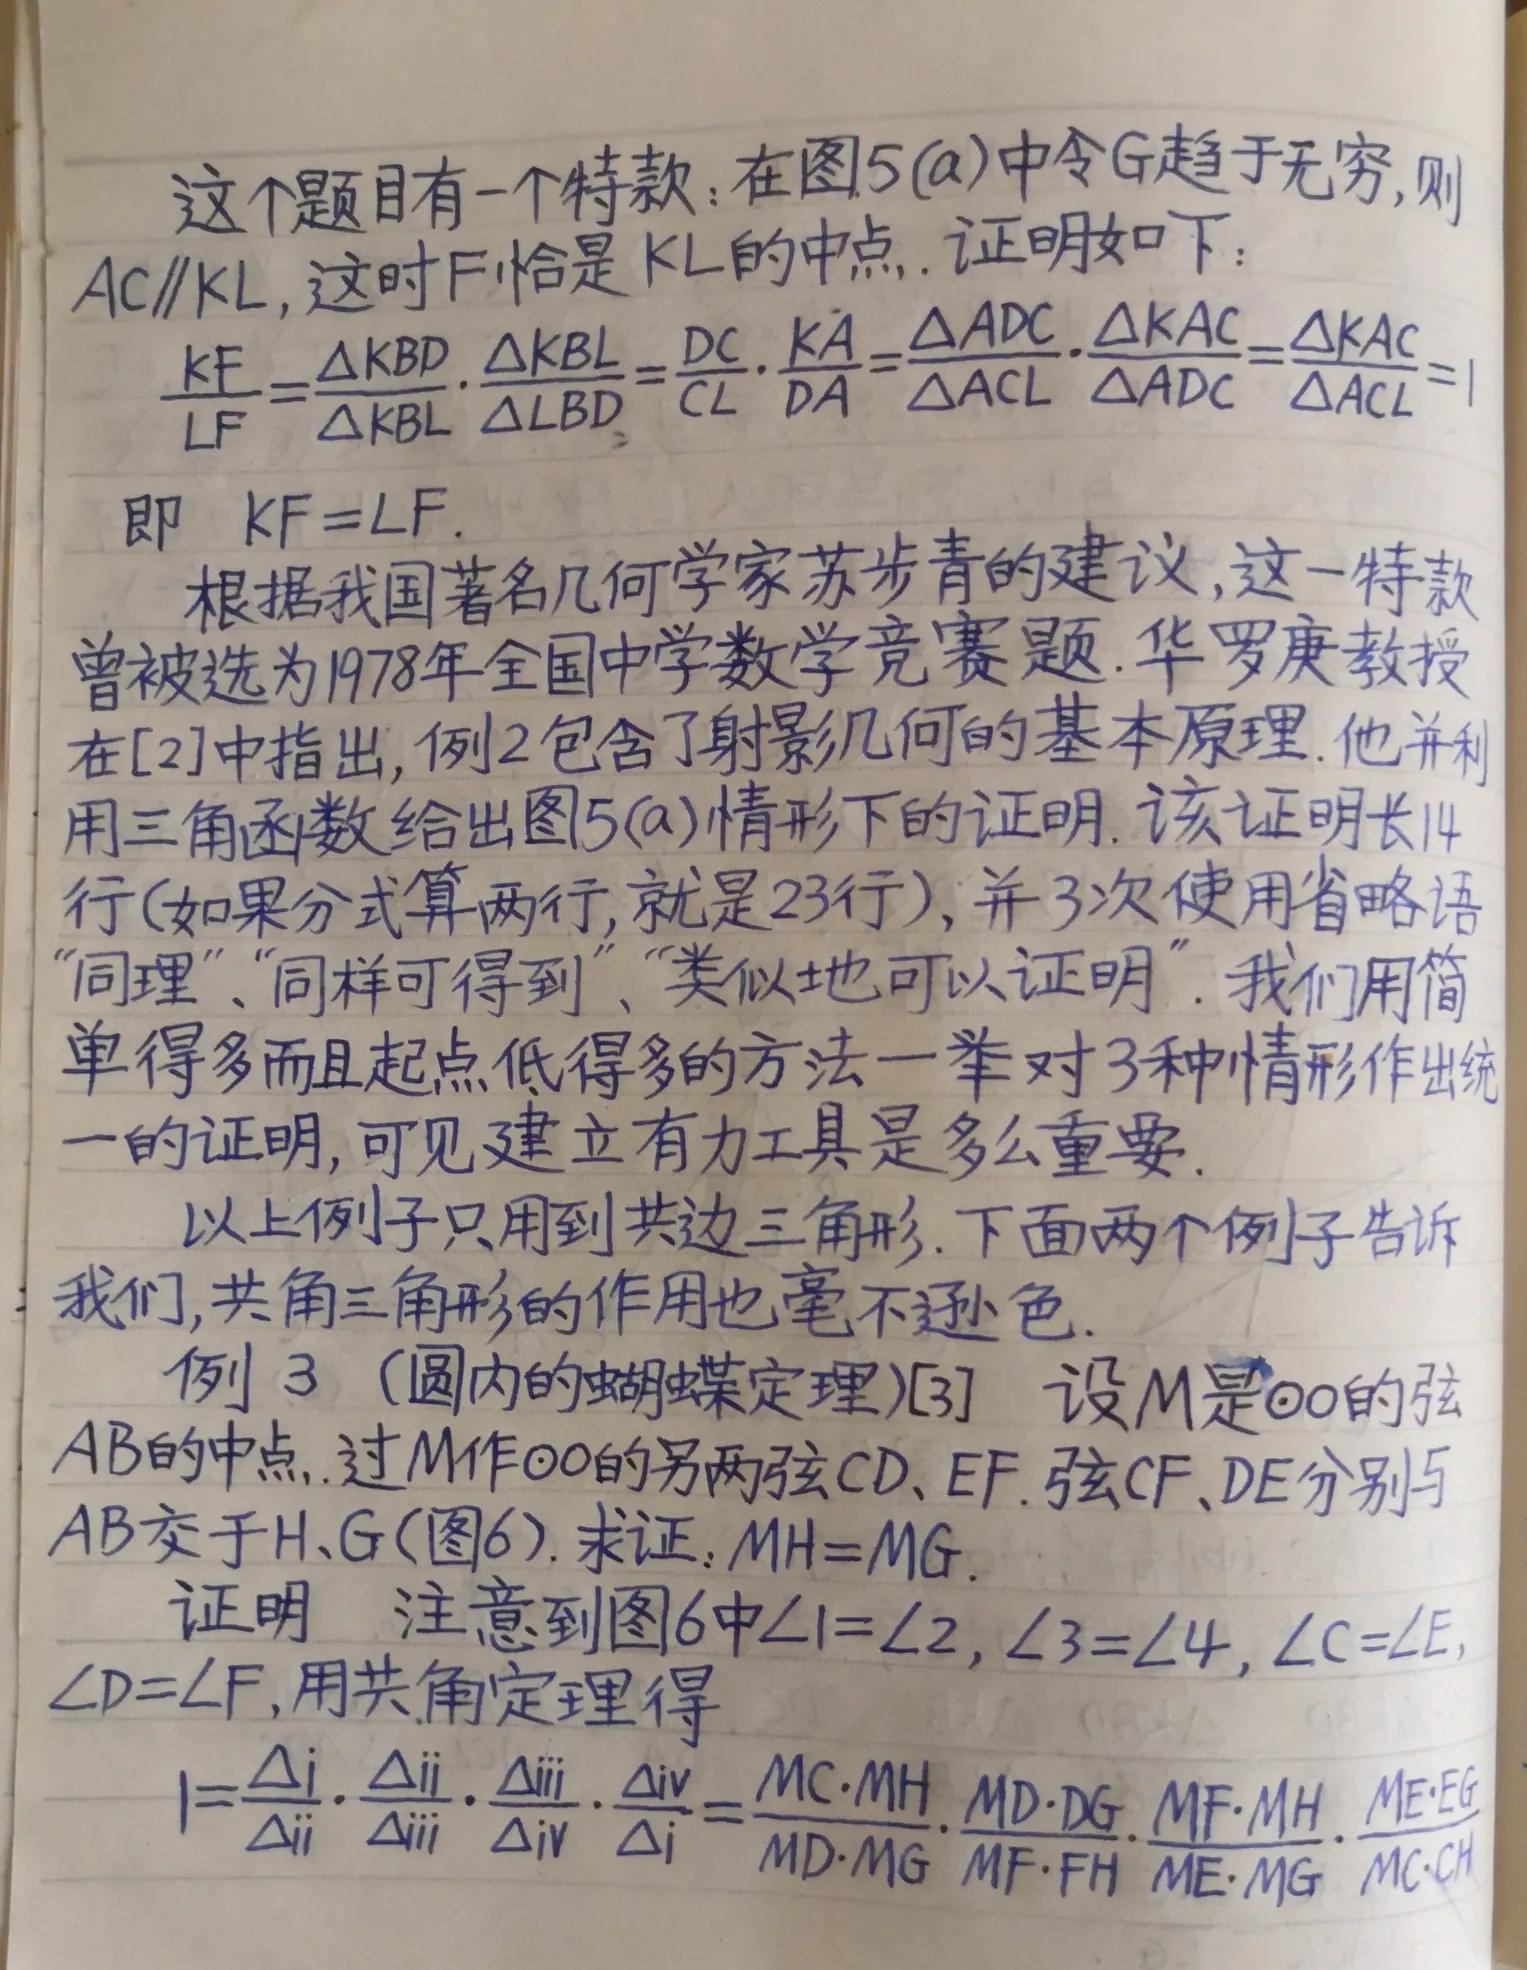 这个题目有一个特款:在图5(a)中令G趋于无穷,则
AC∥KL,这时F恰是KL的中点.证明如下:
KF/LF=△KBD/△KBL·△KBL/△LBD=DC/CL·KA/DA=△ADC/△ACL·△KAC/△ADC=△KAC/△ACL=1
即 KF=LF.
根据我国著名几何学家苏步青的建议,这一特款
曾被选为1978年全国中学数学竞赛题.华罗庚教授
在[2]中指出,例2包含了射影几何的基本原理.他并利
用三角函数给出图5(a)情形下的证明.该证明长14
行(如果分式算两行,就是23行),并3次使用省略语
“同理”、“同样可得到”、“类似地可以证明”.我们用简
单得多而且起点低得多的方法一举对3种情形作出统
一的证明,可见建立有力工具是多么重要.
以上例子只用到共边三角形.下面两个例子告诉
我们,共角三角形的作用也毫不逊色.
例3 (圆内的蝴蝶定理)[3] 设M是⊙O的弦
AB的中点.过M作⊙O的另两弦CD、EF.弦CF、DE分别与
AB交于H、G(图6).求证:MH=MG.
证明 注意到图6中∠1=∠2,∠3=∠4,∠C=∠E,
∠D=∠F,用共角定理得
1=△i/△ii·△ii/△iii·△iii/△iv·△iv/△i=MC·MH/MD·MG·MD·DG/MF·FH·MF·MH/ME·MG·ME·EG/MC·CH